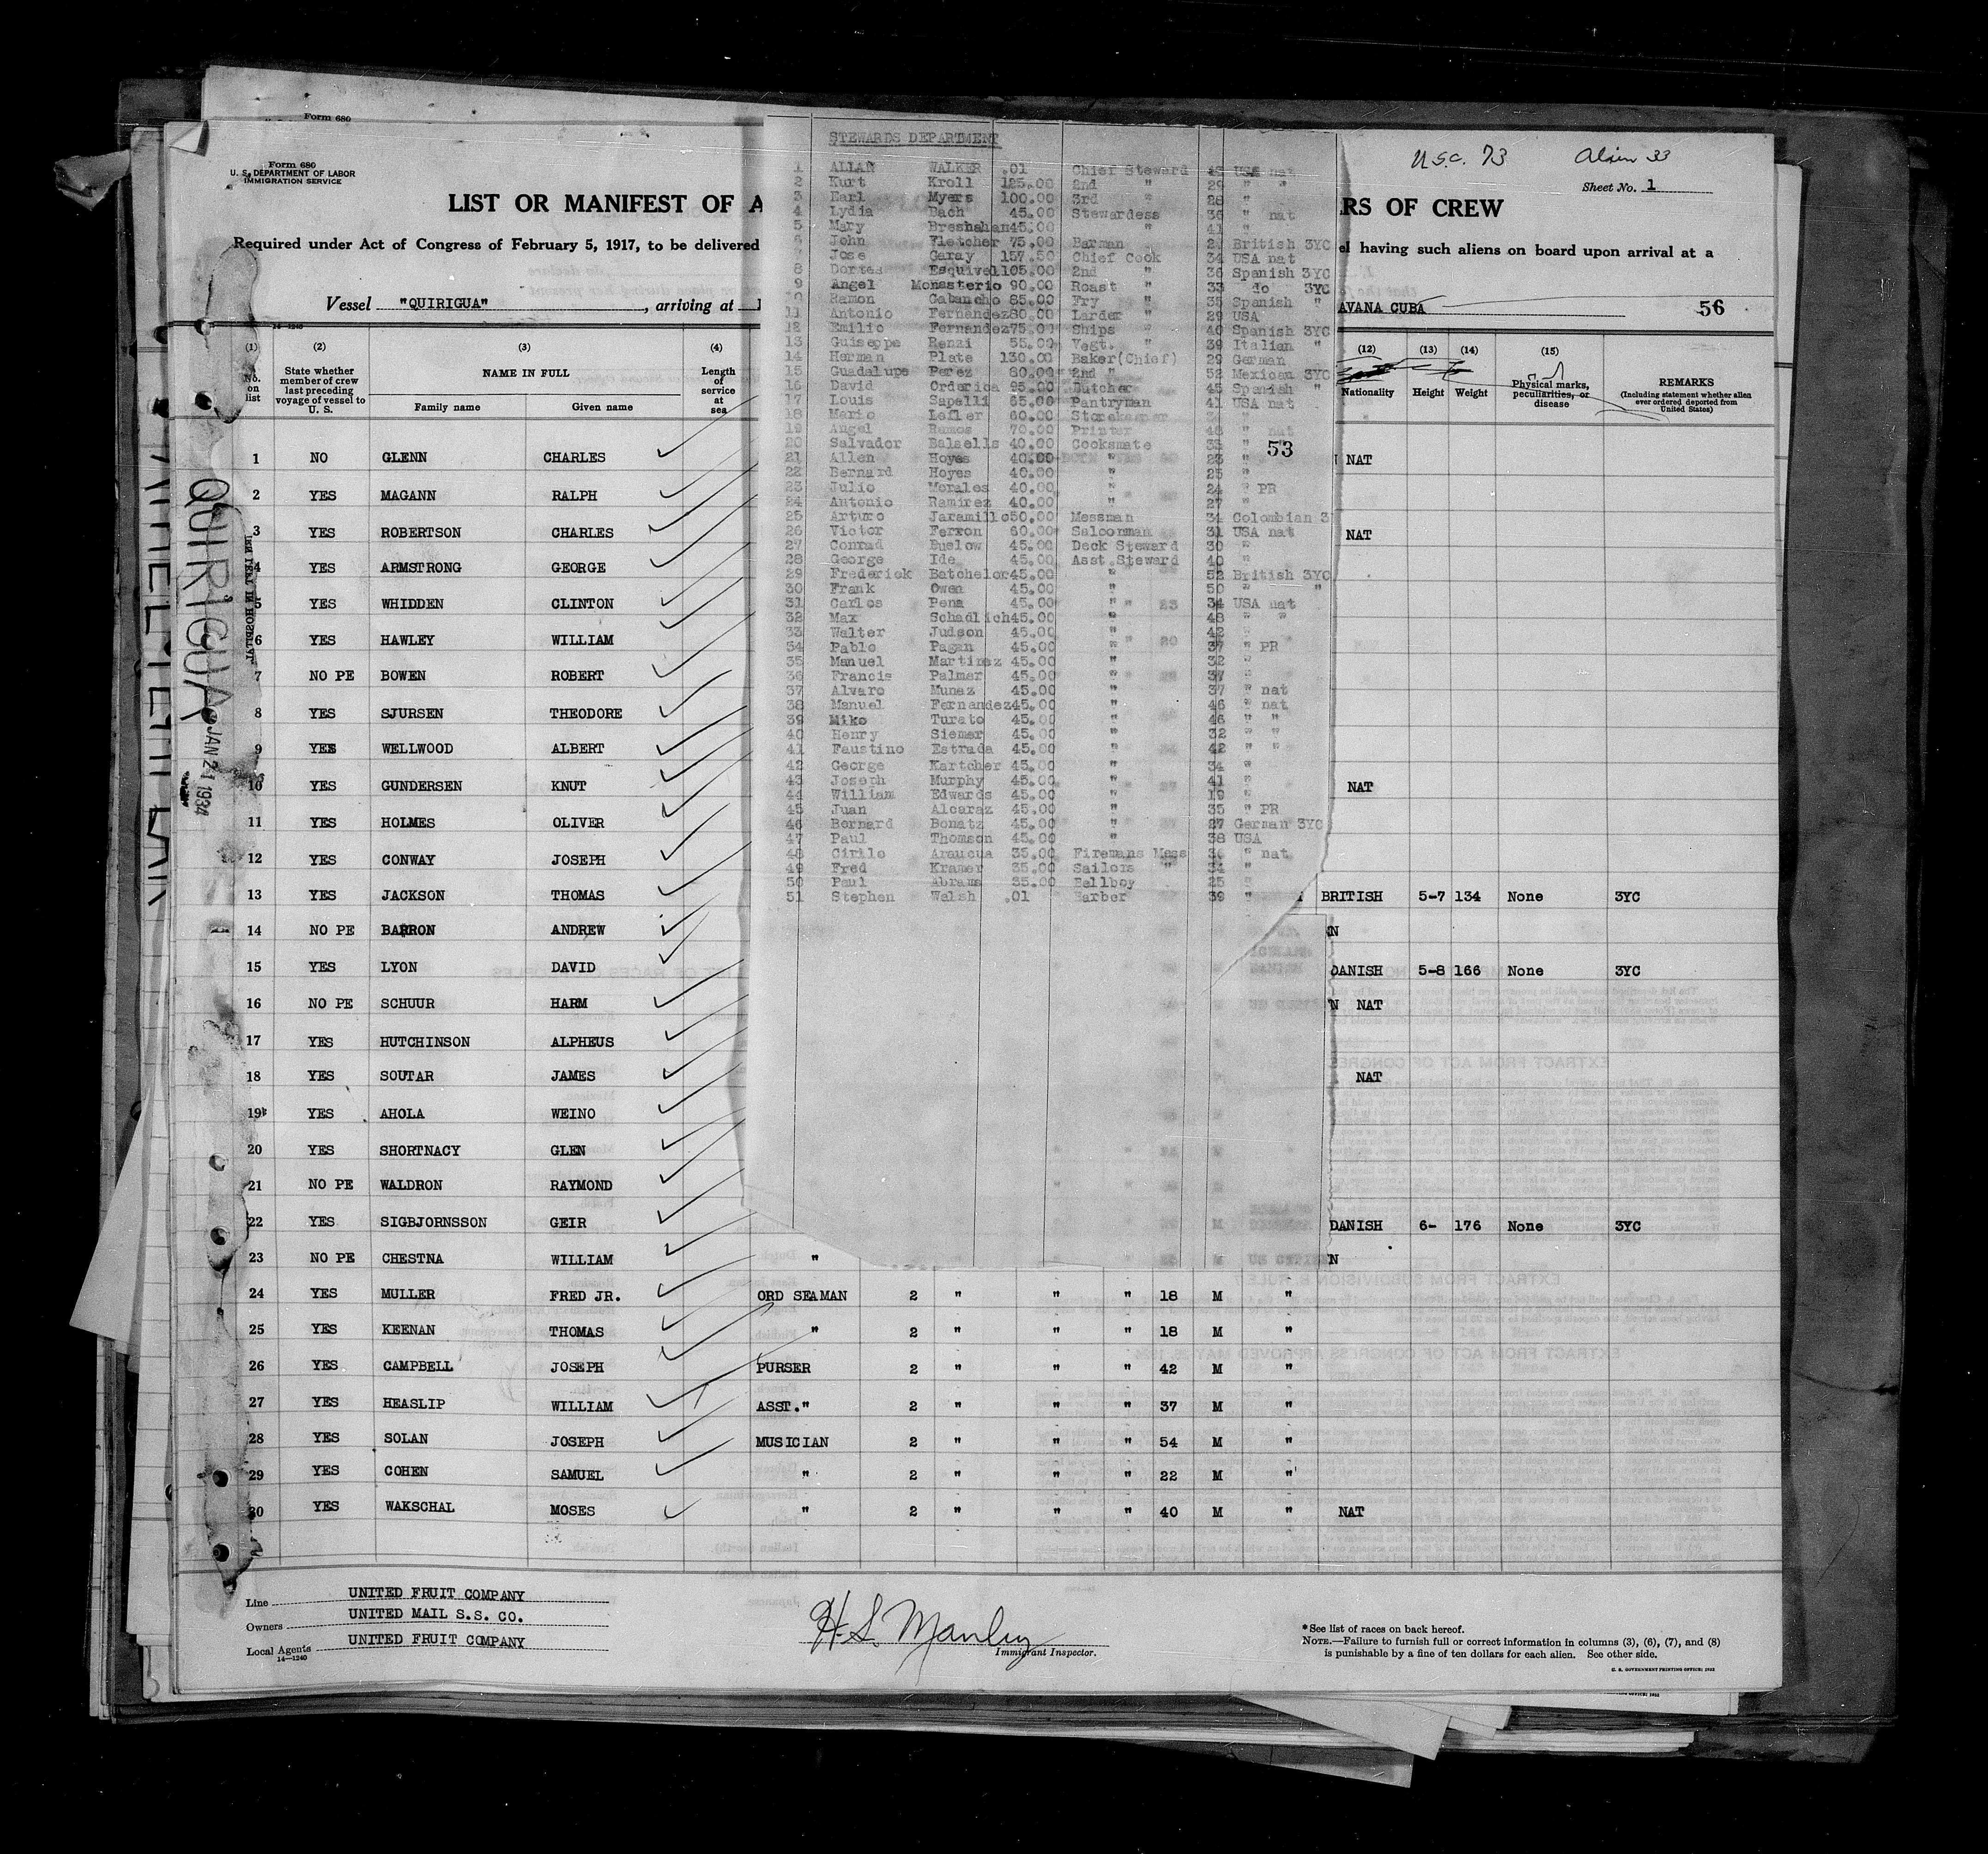 Form 680
Form 680
U. S. DEPARTMENT OF LABOR
IMMIGRATION SERVICE
U.S.C. 73 Alien 33
Sheet No. 1
LIST OR MANIFEST OF A RS OF CREW
Required under Act of Congress of February 5, 1917, to be delivered el having such aliens on board upon arrival at a
Vessel "QUIRIGUA", arriving at AVANA CUBA 56
14-1240
(1) (2) (3) (4) (12) (13) (14) (15)
No. on list
State whether member of crew last preceding voyage of vessel to U. S.
NAME IN FULL
Family name Given name
Length of service at sea
Nationality Height Weight
Physical marks, peculiarities, or disease
REMARKS
(Including statement whether alien ever ordered deported from United States)
STEWARDS DEPARTMENT
1 ALLAN WALKER .01 Chief Steward USA nat
2 Kurt Kroll 125.00 2nd " 29 " "
3 Earl Myers 100.00 3rd " 28 "
4 Lydia Bach 45.00 Stewardess 36 " nat
5 Mary Breshahan 45.00 " 41 "
6 John Fletcher 75.00 Barman British 3YC
7 Jose Garay 157.50 Chief Cook 34 USA nat
8 Dortes Esquivel 105.00 2nd " 36 Spanish 3YC
9 Angel Monasterio 90.00 Roast " 33 do 3YC
10 Ramon Cabancho 85.00 Fry " 35 Spanish "
11 Antonio Fernandez 80.00 Larder " 29 USA
12 Emilio Fernandez 75.00 Ships " 40 Spanish 3YC
13 Guiseppe Renzi 55.00 Vegt. " 39 Italian "
14 Herman Plate 130.00 Baker(Chief) 29 German
15 Guadalupe Perez 80.00 2nd " 52 Mexican 3YC
16 David Orderica 95.00 Butcher 45 Spanish "
17 Louis Sapelli 65.00 Pantryman 41 USA nat
18 Mario Lefler 60.00 Storekeeper "
19 Angel Ramos 70.00 Printer " nat
20 Salvador Balsells 40.00 Cooksmate "
53
21 Allen Hoyes 40.00 " 23 "
22 Bernard Hoyes 40.00 25 "
23 Julio Morales 40.00 " 24 " PR
24 Antonio Ramirez 40.00 " 27 "
25 Arturo Jaramillo 50.00 Messman 34 Colombian 3
26 Victor Ferron 60.00 Saloonman 31 USA nat
27 Conrad Buelow 45.00 Deck Steward 30 "
28 George Ide 45.00 Asst.Steward 40 "
29 Frederick Batchelor 45.00 " 52 British 3YC
30 Frank Owen 45.00 " 50 " "
31 Carlos Pena 45.00 " 34 USA nat
32 Max Schadlich 45.00 " 48 " "
33 Walter Judson 45.00 " 42 "
34 Pablo Pagan 45.00 " 37 " PR
35 Manuel Martinez 45.00 " 32 "
36 Francis Palmer 45.00 " 37 "
37 Alvaro Munaz 45.00 " 37 " nat
38 Manuel Fernandez 45.00 " 46 " nat
39 Miko Turato 45.00 " 46 " "
40 Henry Siemer 45.00 " 32 " "
41 Faustino Estrada 45.00 " 42 " "
42 George Kartcher 45.00 " 34 "
43 Joseph Murphy 45.00 " 41 "
44 William Edwards 45.00 " 19 "
45 Juan Alcaraz 45.00 " 35 " PR
46 Bernard Bonatz 45.00 " 27 German 3YC
47 Paul Thomson 45.00 " 38 USA
48 Cirilo Araucua 35.00 Firemans Mess " nat
49 Fred Kramer 35.00 Sailors " 34 "
50 Paul Abrams 35.00 Bellboy 25 "
51 Stephen Walsh .01 Barber 39 "
1 NO GLENN CHARLES NAT
2 YES MAGANN RALPH
3 YES ROBERTSON CHARLES NAT
4 YES ARMSTRONG GEORGE
5 YES WHIDDEN CLINTON
6 YES HAWLEY WILLIAM
7 NO PE BOWEN ROBERT
8 YES SJURSEN THEODORE
9 YES WELLWOOD ALBERT
10 YES GUNDERSEN KNUT NAT
11 YES HOLMES OLIVER
12 YES CONWAY JOSEPH
13 YES JACKSON THOMAS BRITISH 5-7 134 None 3YC
14 NO PE BARRON ANDREW N
15 YES LYON DAVID DANISH 5-8 166 None 3YC
16 NO PE SCHUUR HARM N NAT
17 YES HUTCHINSON ALPHEUS
18 YES SOUTAR JAMES NAT
19 YES AHOLA WEINO
20 YES SHORTNACY GLEN
21 NO PE WALDRON RAYMOND
22 YES SIGBJORNSSON GEIR DANISH 6- 176 None 3YC
23 NO PE CHESTNA WILLIAM " N
24 YES MULLER FRED JR. ORD SEAMAN 2 " " " 18 M "
25 YES KEENAN THOMAS " 2 " " " 18 M "
26 YES CAMPBELL JOSEPH PURSER 2 " " " 42 M "
27 YES HEASLIP WILLIAM ASST." 2 " " " 37 M "
28 YES SOLAN JOSEPH MUSICIAN 2 " " " 54 M "
29 YES COHEN SAMUEL " 2 " " " 22 M "
30 YES WAKSCHAL MOSES " 2 " " " 40 M " NAT
QUIRIGUA
JAN 21 1934
Line UNITED FRUIT COMPANY
Owners UNITED MAIL S.S. CO.
Local Agents UNITED FRUIT COMPANY
14-1240
H. S. Manley
Immigrant Inspector.
*See list of races on back hereof.
NOTE.—Failure to furnish full or correct information in columns (3), (6), (7), and (8)
is punishable by a fine of ten dollars for each alien. See other side.
U. S. GOVERNMENT PRINTING OFFICE: 1932